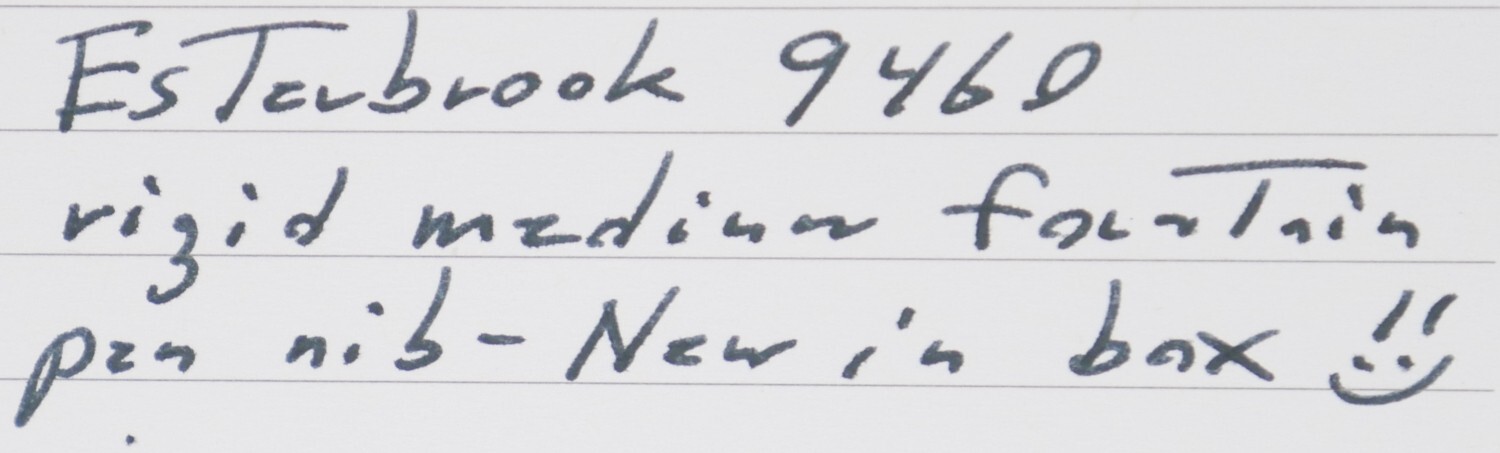 Esterbrook 9460
rigid medium fountain
pen nib - New in box !!